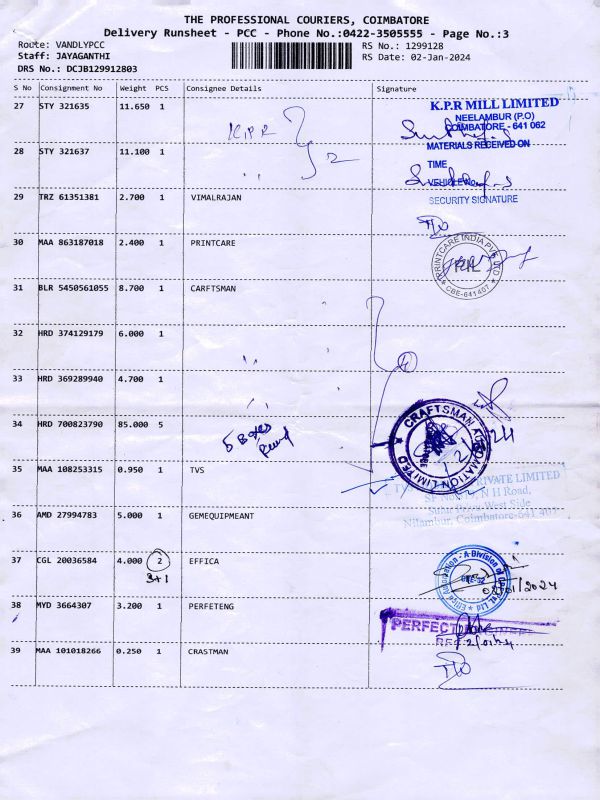 THE PROFESSIONAL COURIERS, COIMBATORE
Delivery Runsheet - PCC - Phone No.:0422-3505555 - Page No.:3
Route: VANDLYPCC RS No.: 1299128
Staff: JAYAGANTHI RS Date: 02-Jan-2024
DRS No.: DCJB129912803
S No Consignment No Weight PCS Consignee Details Signature
27 STY 321635 11.650 1
K.P.R
K.P.R MILL LIMITED
NEELAMBUR (P.O)
COIMBATORE - 641 062
MATERIALS RECEIVED ON
28 STY 321637 11.100 1
TIME
VEHICLE No.
SECURITY SIGNATURE
29 TRZ 61351381 2.700 1 VIMALRAJAN
30 MAA 863187018 2.400 1 PRINTCARE
PRINTCARE INDIA PVT LTD
CBE-641407
31 BLR 5450561055 8.700 1 CARFTSMAN
32 HRD 374129179 6.000 1
4
33 HRD 369289940 4.700 1
34 HRD 700823790 85.000 5
5 Boxes
CRAFTSMAN AUTOMATION LIMITED
35 MAA 108253315 0.950 1 TVS
PRIVATE LIMITED
N H Road,
West Side
Nilambur, Coimbatore-641 407
36 AMD 27994783 5.000 1 GEMEQUIPMEANT
37 CGL 20036584 4.000 2 EFFICA
3+1
Effica Automation - A Division of
03/01/2024
38 MYD 3664307 3.200 1 PERFETENG
PERFECT
2/01/24
39 MAA 101018266 0.250 1 CRASTMAN